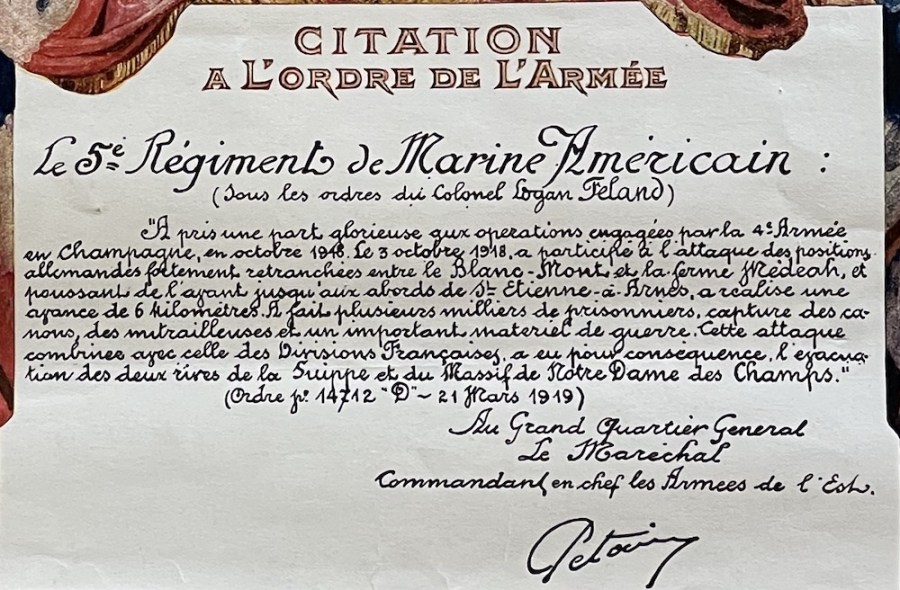 CITATION
A L'ORDRE DE L'ARMÉE
Le 5e Régiment de Marine Américain :
(Sous les ordres du Colonel Logan Feland)
"A pris une part glorieuse aux operations engagées par la 4e Armée
en Champagne, en octobre 1918. Le 3 octobre 1918, a participé à l'attaque des positions
allemandes fortement retranchées entre le Blanc-Mont et la ferme Medeah, et
poussant de l'avant jusqu'aux abords de St Etienne-à-Arnes, a réalisé une
avance de 6 kilomètres. A fait plusieurs milliers de prisonniers, capture des ca-
nons, des mitrailleuses et un important materiel de guerre. Cette attaque
combinee avec celle des Divisions Françaises, a eu pour conséquence, l'evacua-
tion des deux rives de la Suippe et du Massif de Notre Dame des Champs."
(Ordre No 14712 "D" ~ 21 Mars 1919)
Au Grand Quartier General
Le Maréchal
Commandant en chef les Armees de l'Est.
Petain